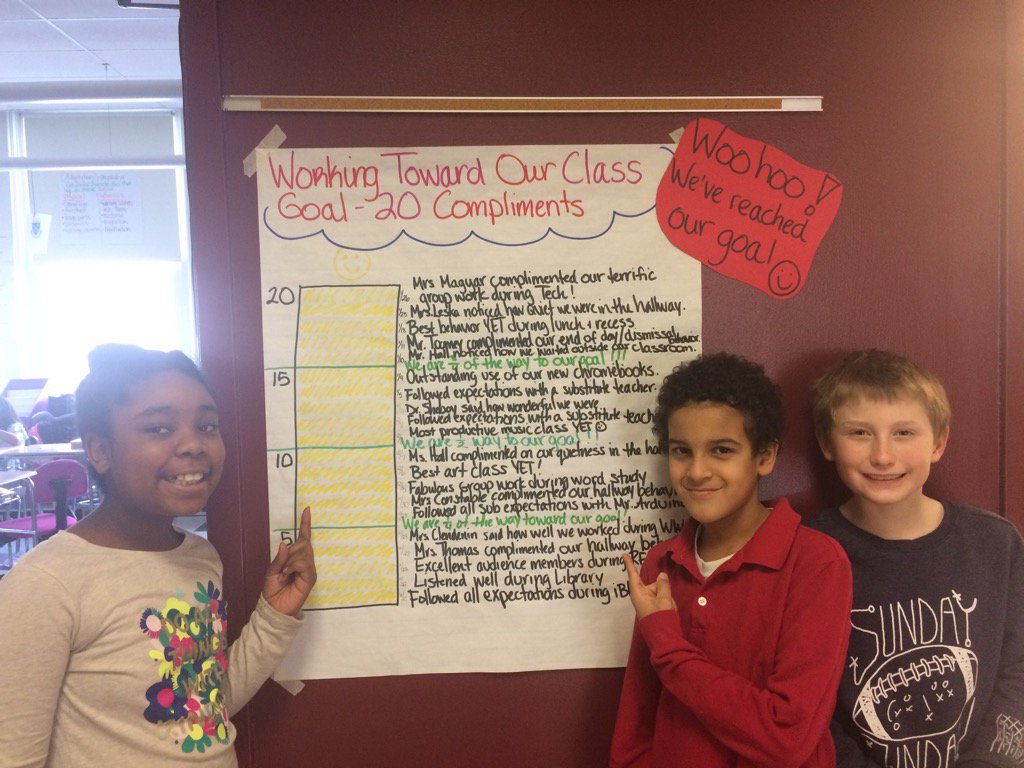 Working Toward Our Class
Goal - 20 Compliments
Woohoo!
We've reached
our goal
20
15
10
5
Mrs Maguar complimented our terrific
group work during Tech!
Mrs. Leska noticed how quiet we were in the hallway.
Best behavior YET during lunch + recess
Mr. Toomey complimented our end of day/dismissal behavior.
Mr. Hall noticed how we waited outside our classroom.
We are ¾ of the way to our goal!!!
Outstanding use of our new chromebooks.
Followed expectations with a substitute teacher.
Dr. said how wonderful we were
Followed expectations with a substitute teach
Most productive music class YET
We are ½ way to our goal!!
Ms. Hall complimented on our quietness in the ha
Best art class YET!
Fabulous group work during word study
Mrs Constable complimented our hallway behavi
Followed all sub expectations with Mr. Arduin
We are ¼ of the way toward our goal
Mrs. Clendenin said how well we worked during WW
Mrs Thomas complimented our hallway beh
Excellent audience members during
Listened well during Library
Followed all expectations during
SUNDAY
SUNDA